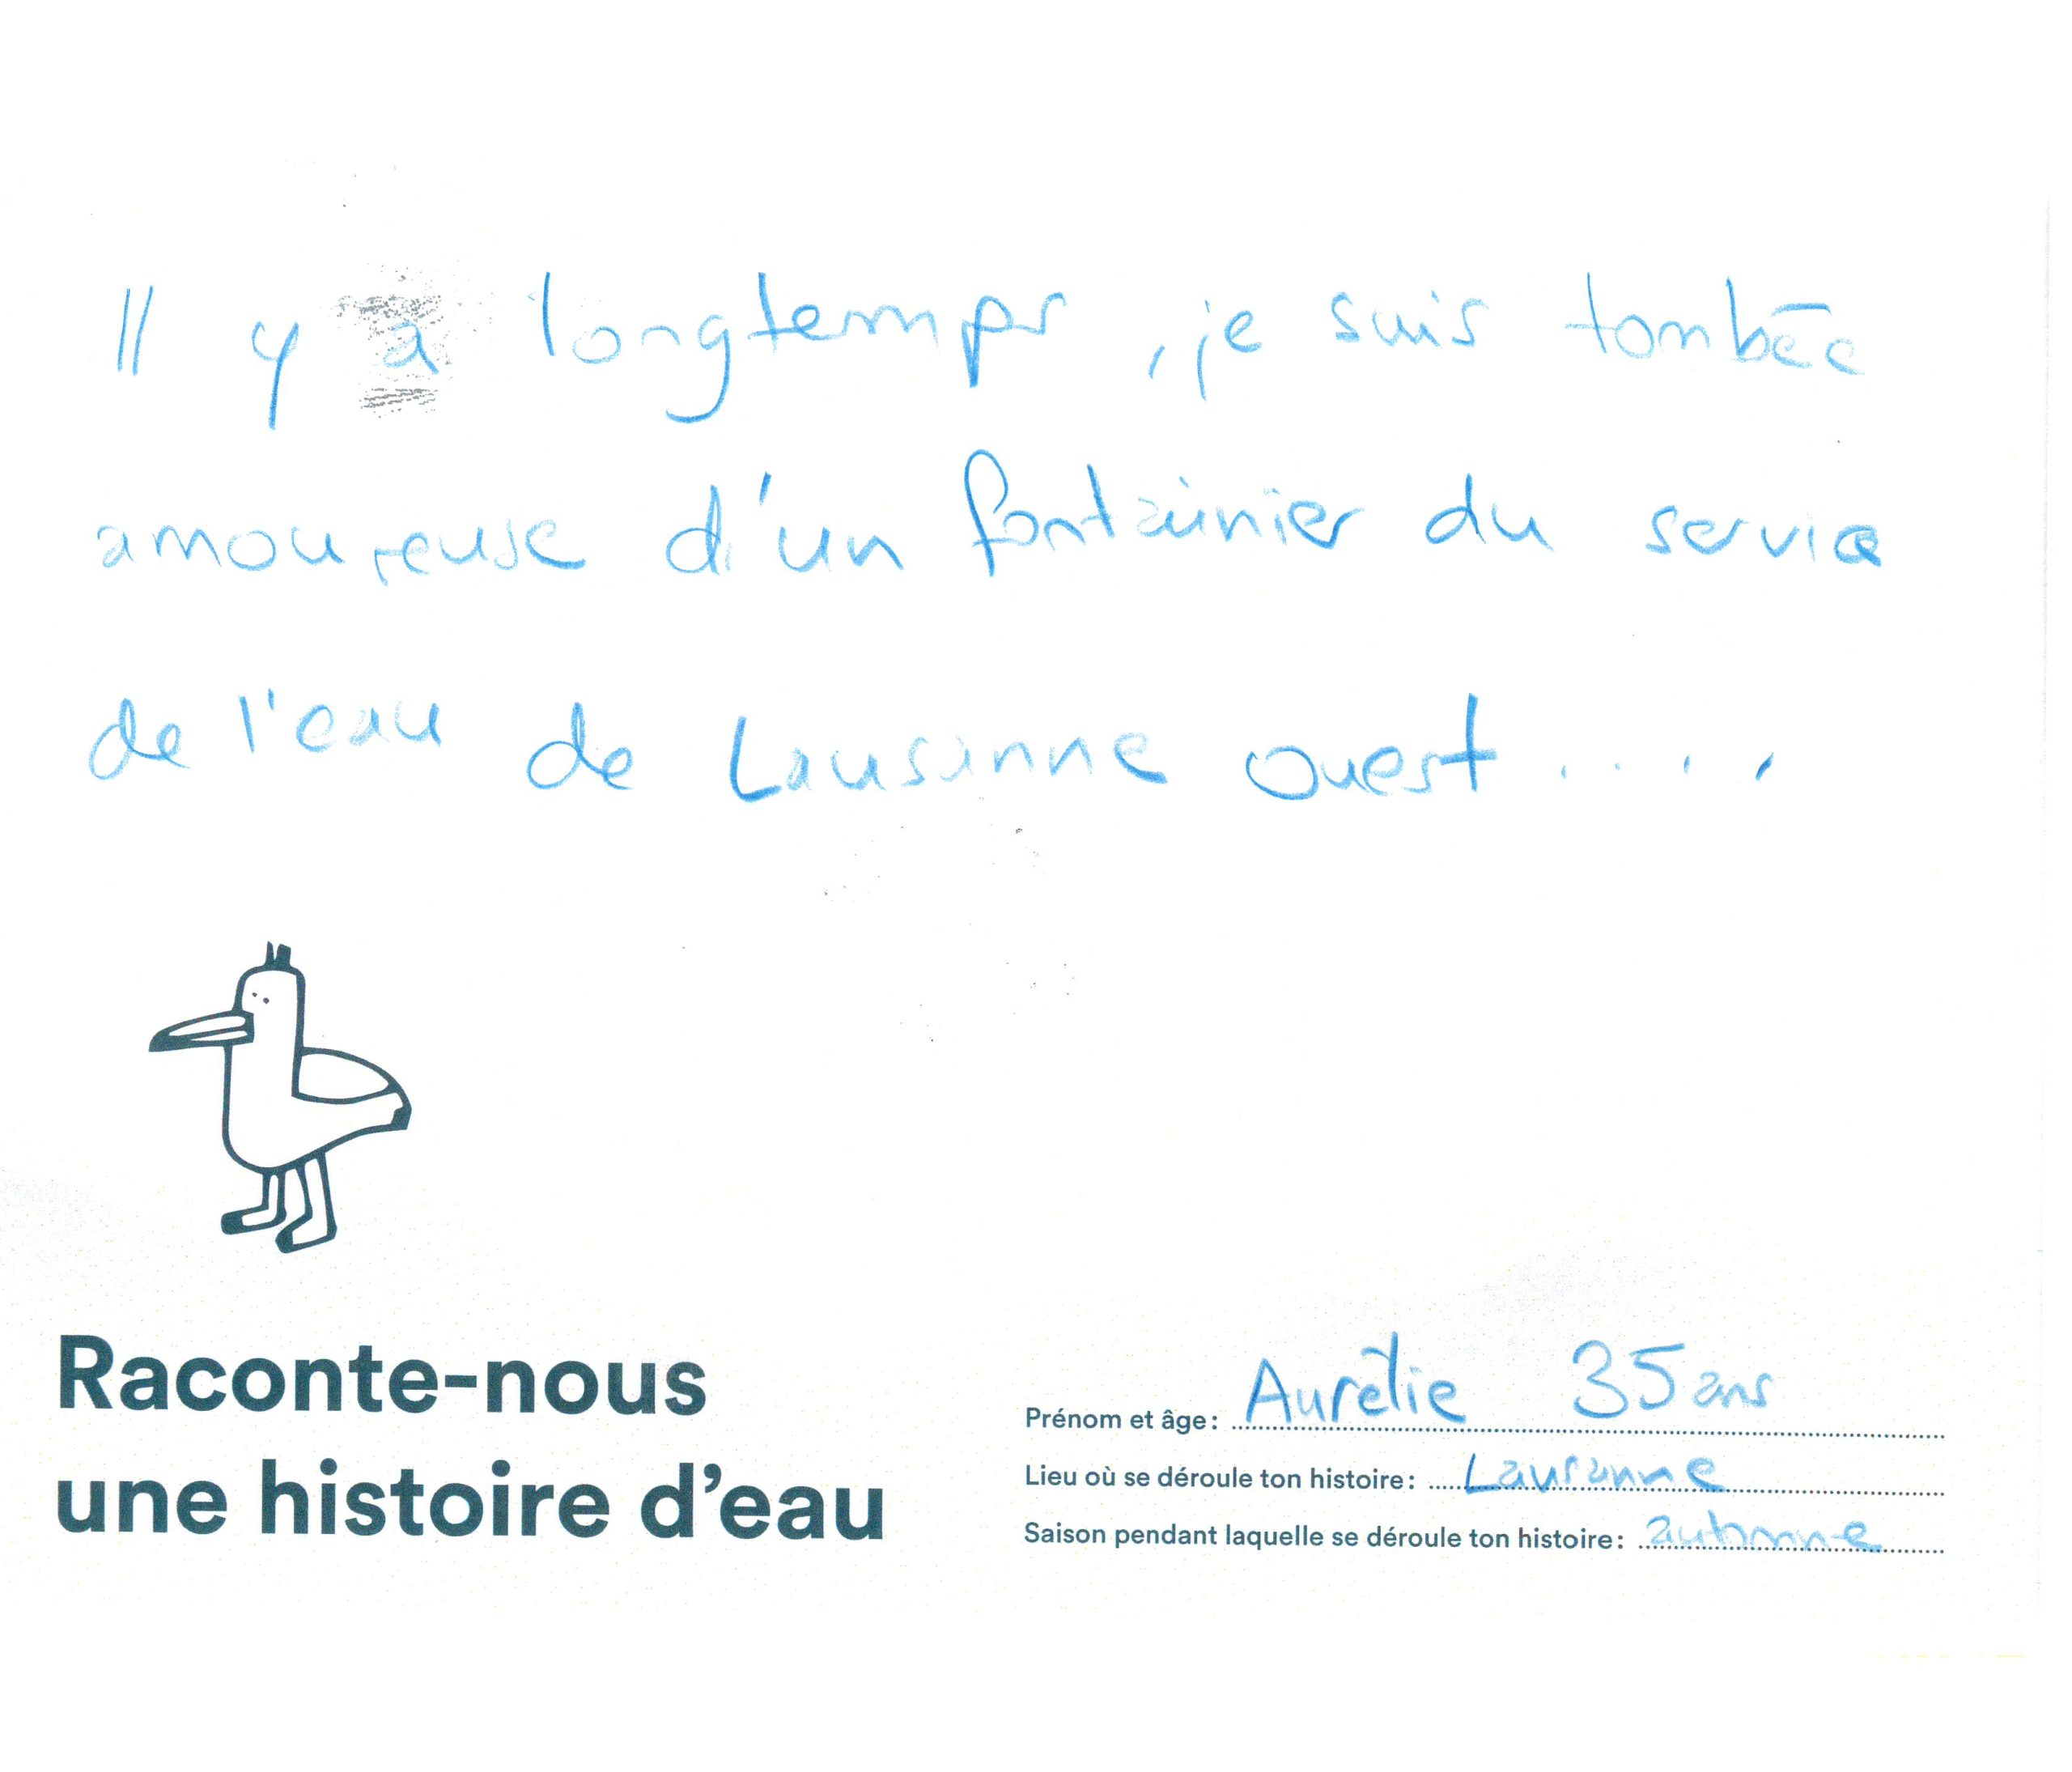 Il y a longtemps, je suis tombée
amoureuse d'un fontainier du service
de l'eau de Lausanne Ouest.....
Raconte-nous
une histoire d'eau
Prénom et âge: Aurélie 35 ans
Lieu où se déroule ton histoire: Lausanne
Saison pendant laquelle se déroule ton histoire: automne